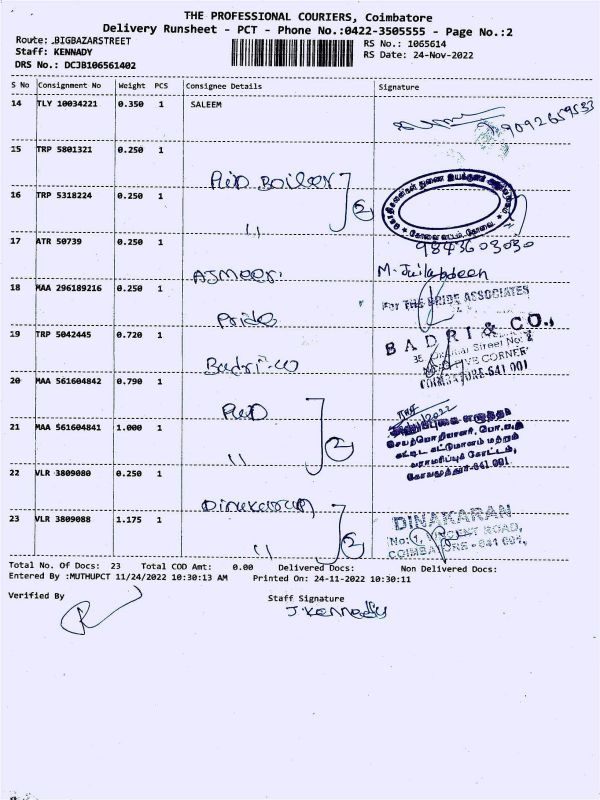 THE PROFESSIONAL COURIERS, Coimbatore
Delivery Runsheet - PCT - Phone No.:0422-3505555 - Page No.:2
Route: .BIGBAZARSTREET
Staff: KENNADY
DRS No.: DCJB106561402
RS No.: 1065614
RS Date: 24-Nov-2022
S No Consignment No Weight PCS Consignee Details Signature
14 TLY 10034221 0.350 1 SALEEM
9092659533
15 TRP 5801321 0.250 1
PWD Boiler
16 TRP 5318224 0.250 1
" 2
17 ATR 50739 0.250 1
9843603030
Ajmeer
18 MAA 296189216 0.250 1
For THE PRIDE ASSOCIATES
Pride
19 TRP 5042445 0.720 1
BADRI & CO.,
Badri-co
COIMBATORE-641 001
20 MAA 561604842 0.790 1
PWD
21 MAA 561604841 1.000 1
" 2
கோயமுத்தூர்-641 001.
22 VLR 3809080 0.250 1
Dinakaran
DINAKARAN
23 VLR 3809088 1.175 1
" 2
COIMBATORE - 641 001.
Total No. Of Docs: 23 Total COD Amt: 0.00 Delivered Docs: Non Delivered Docs:
Entered By :MUTHUPCT 11/24/2022 10:30:13 AM Printed On: 24-11-2022 10:30:11
Verified By
Staff Signature
J. Kennady